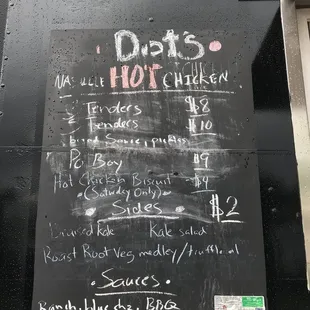 Dot's
HOT CHICKEN
Tenders $8
Tenders $10
Sauce, pickles
Po Boy $9
Hot Chicken Biscuit $4
(Saturday Only)
Sides $2
Braised Kale Kale salad
Roast Root Veg medley/truffle oil
Sauces
Ranch, blue chz, BBQ